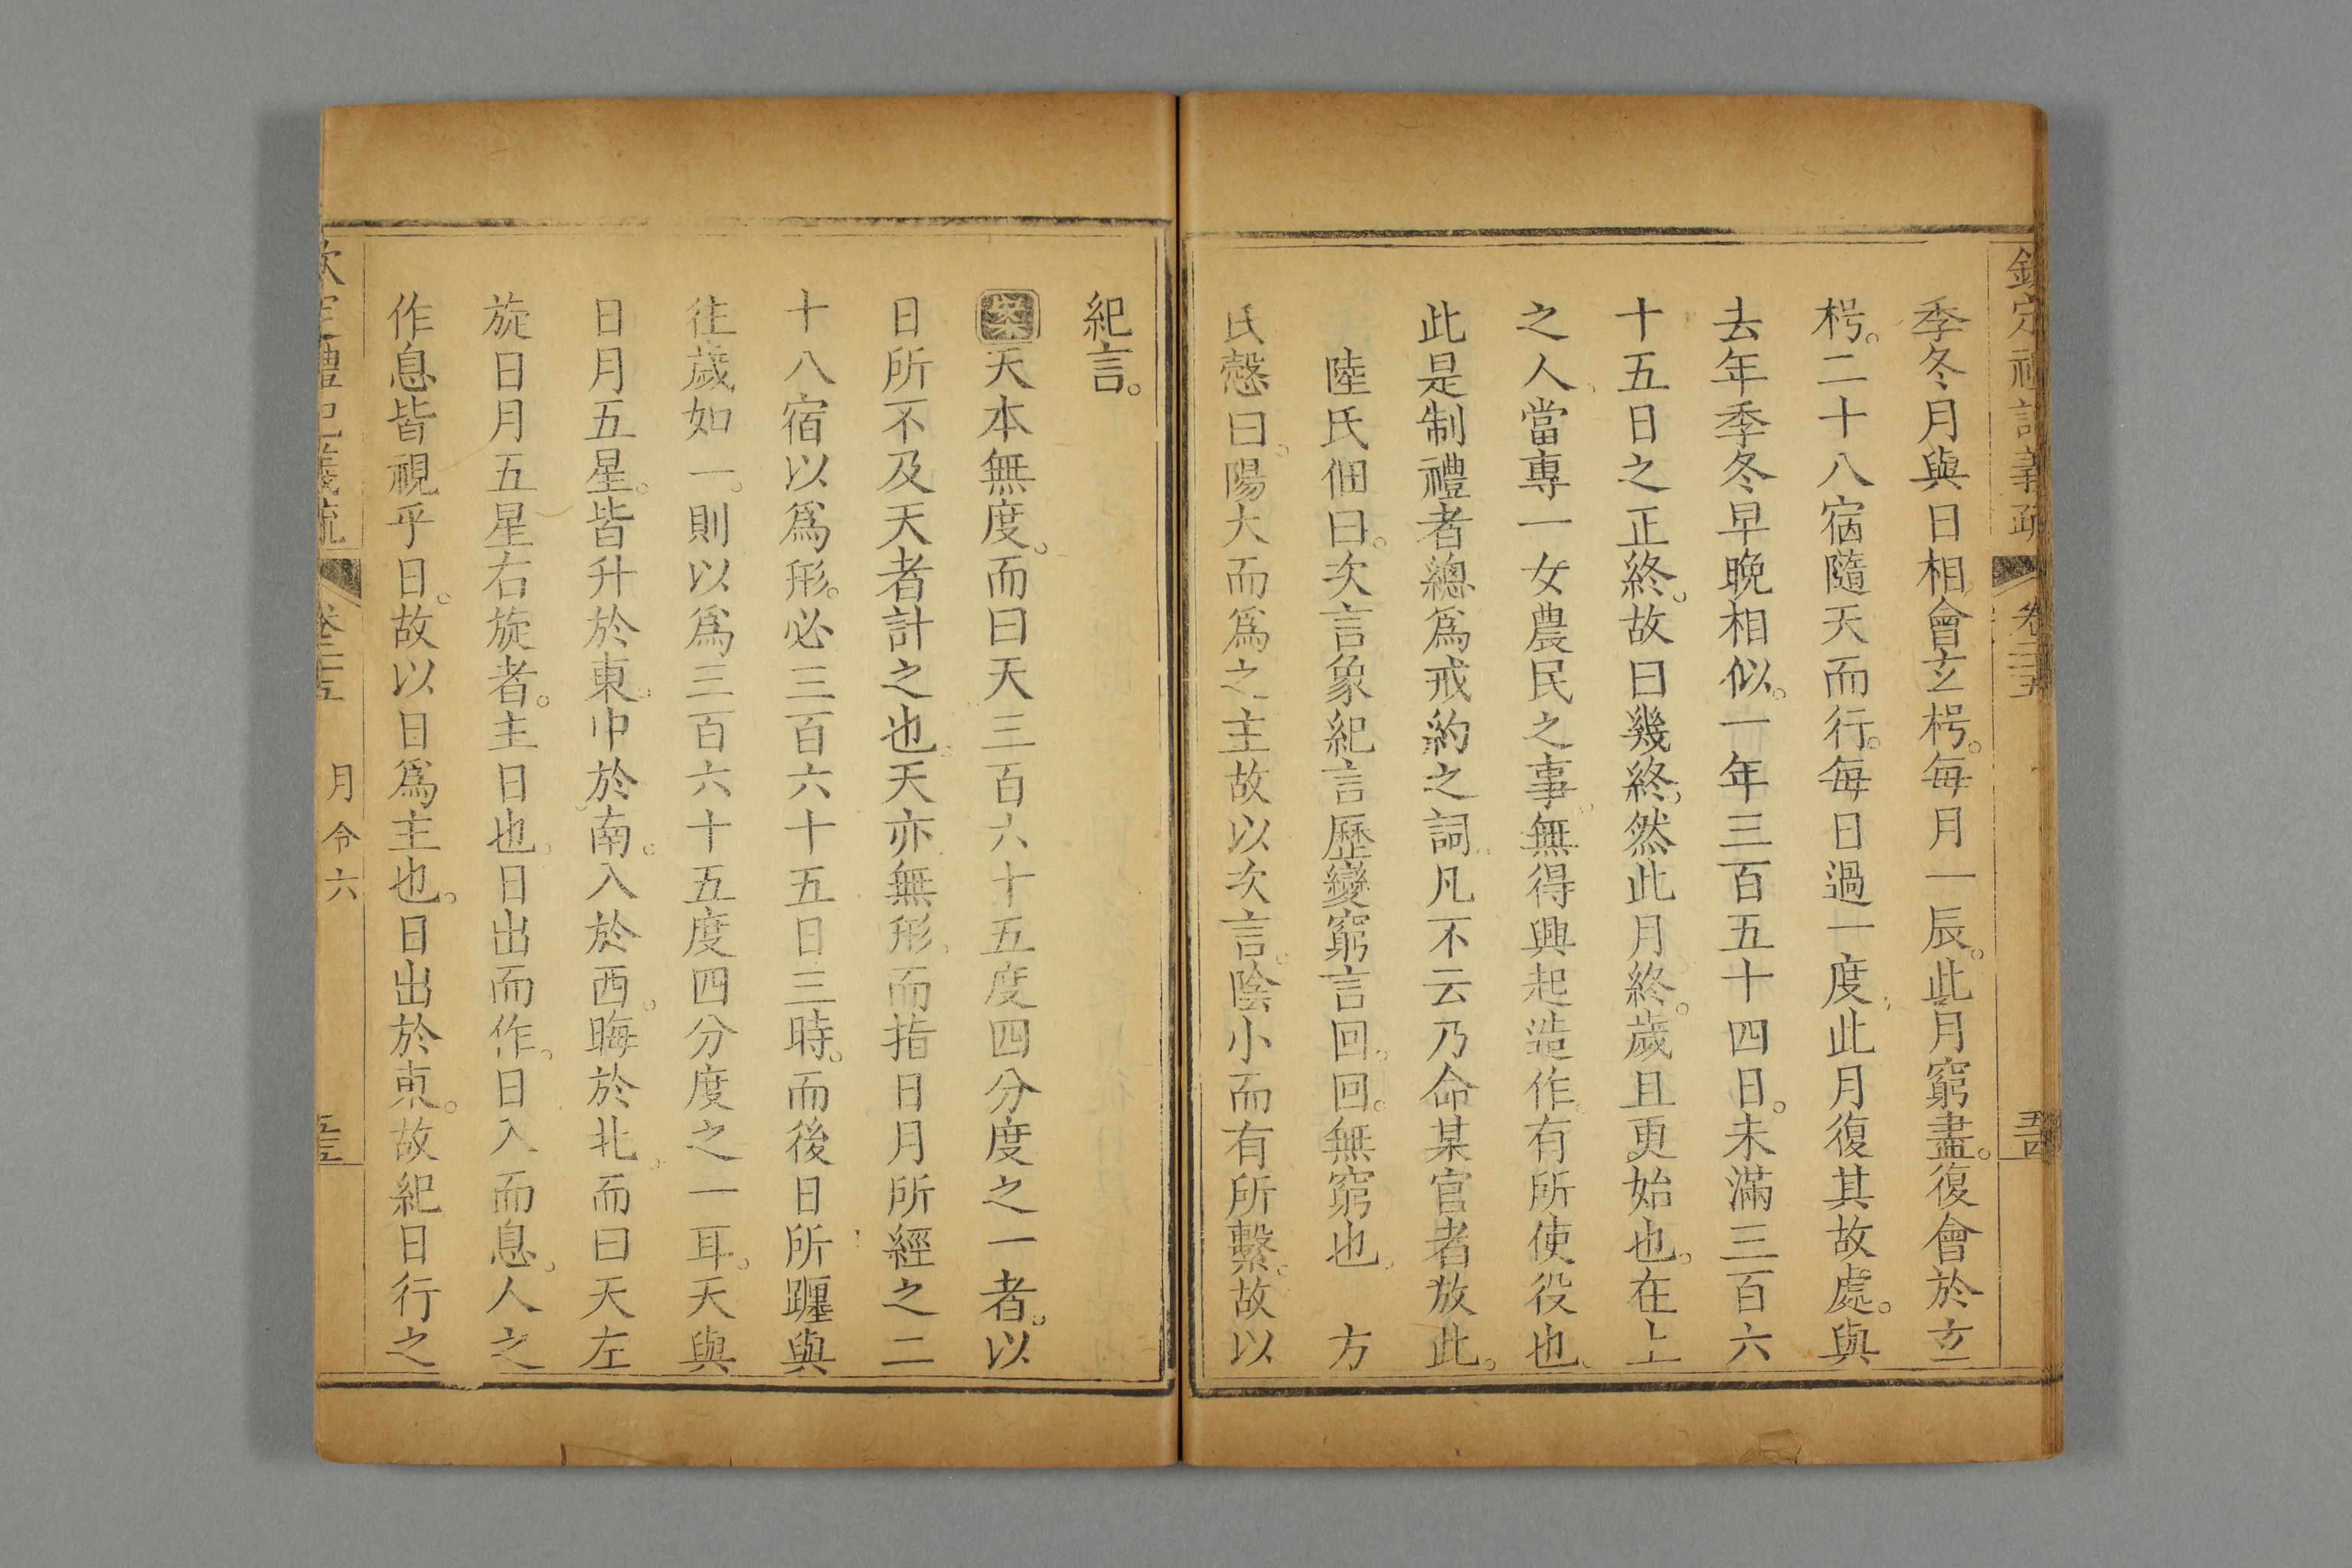 欽定禮記義疏 卷二十五
季冬月與日相會玄枵。每月一辰。此月窮盡。復會於玄
枵。二十八宿隨天而行。每日過一度。此月復其故處。與
去年季冬早晚相似。一年三百五十四日。未滿三百六
十五日之正終。故曰幾終。然此月終。歲且更始也。在上
之人。當專一女農民之事。無得興起造作。有所使役也。
此是制禮者總為戒約之詞。凡不云乃命某官者放此。
陸氏佃曰。次言象紀言歷變窮言回。回。無窮也。 方
氏慤曰。陽大而為之主故以次言。陰小而有所繫。故以
紀言。
案天本無度。而曰天三百六十五度四分度之一者。以
日所不及天者計之也。天亦無形。而指日月所經之二
十八宿以為形。必三百六十五日三時。而後日所躔與
往歲如一。則以為三百六十五度四分度之一耳。天與
日月五星。皆升於東。中於南。入於西。晦於北。而曰天左
旋日月五星右旋者。主日也。日出而作。日入而息。人之
作息皆視乎日。故以日為主也。日出於東。故紀日行之
欽定禮記義疏 卷二十五 月令六